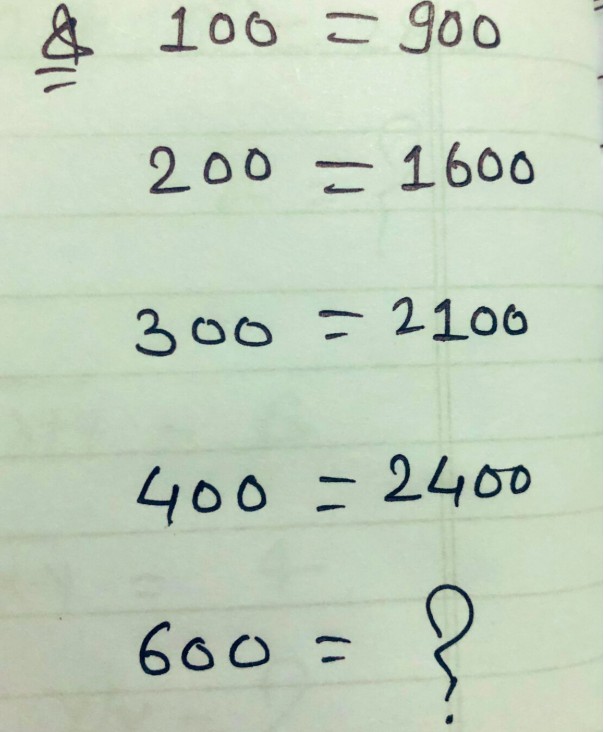 Q 100 = 900
200 = 1600
300 = 2100
400 = 2400
600 = ?